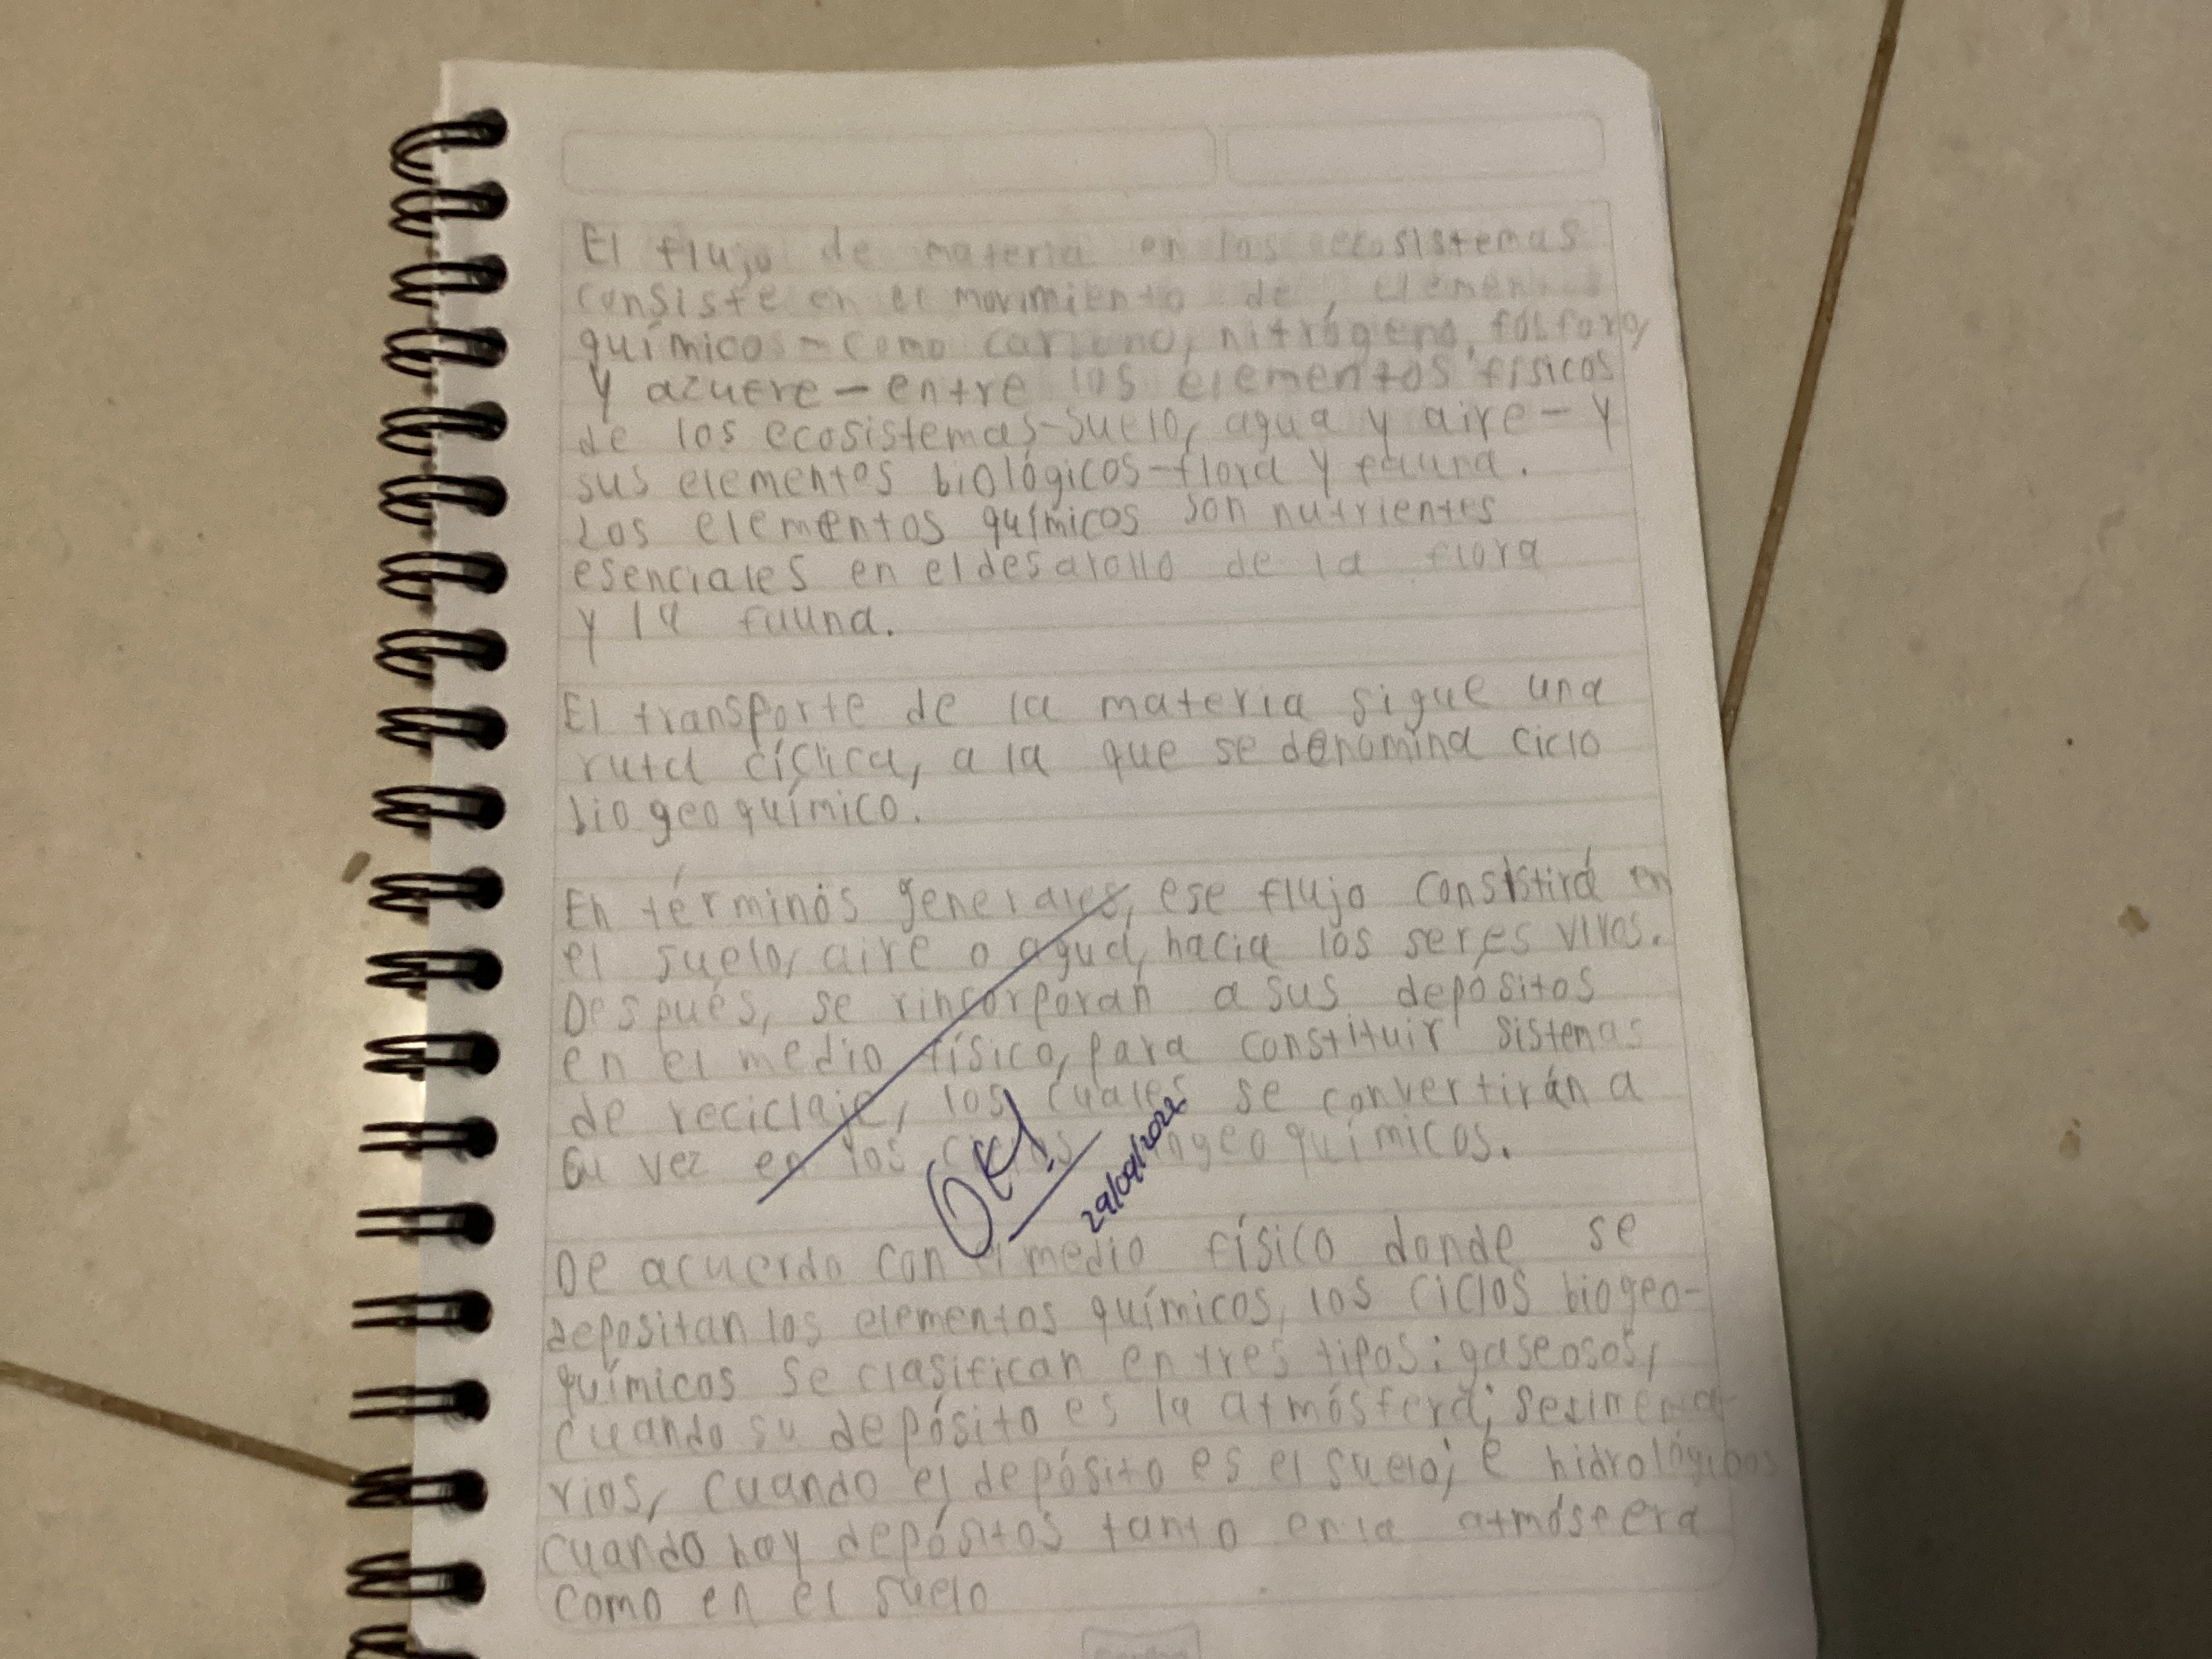 El flujo de materia en los ecosistemas
consiste en el movimiento de
químicos-como carbono, nitrógeno, fósforo,
y azuere-entre los elementos físicos
de los ecosistemas-suelo, agua y aire-y
sus elementos biológicos-flora y fauna.
Los elementos químicos son nutrientes
esenciales en el desarollo de la flora
y la fauna.
El transporte de la materia sigue una
ruta cíclica, a la que se denomina ciclo
biogeoquímico.
En términos generales, ese flujo consistirá en
el suelo, aire o agua, hacia los seres vivos.
Después, se rincorporan a sus depósitos
en el medio físico, para constituir sistemas
de reciclaje, los cuales se convertirán a
su vez en los químicos.
OK!
29/09/2022
De acuerdo con medio físico donde se
depositan los elementos químicos, los ciclos biogeo-
químicos se clasifican en tres tipos: gaseosos,
cuando su depósito es la atmósfera;
rios, cuando el depósito es el suelo; e hidrológicos
cuando hay depósitos tanto en la atmósfera
como en el suelo